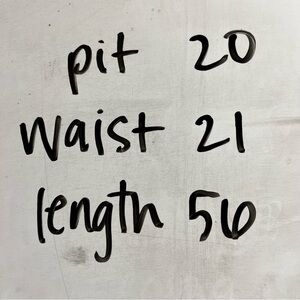 pit 20
waist 21
length 56